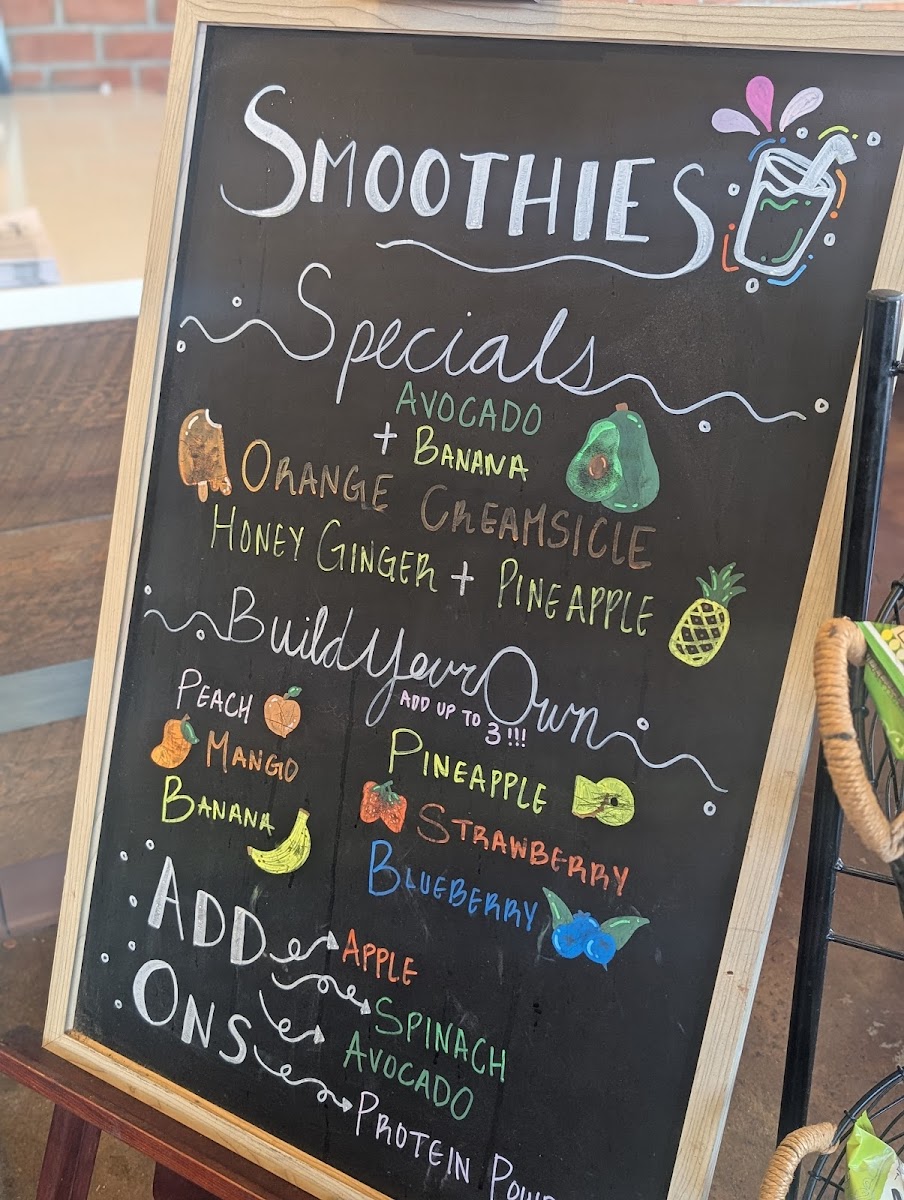 SMOOTHIES
Specials
AVOCADO
+ BANANA
ORANGE CREAMSICLE
HONEY GINGER + PINEAPPLE
Build Your Own
ADD UP TO
3!!!
PEACH
MANGO
BANANA
PINEAPPLE
STRAWBERRY
BLUEBERRY
ADD
ONS
APPLE
SPINACH
AVOCADO
PROTEIN